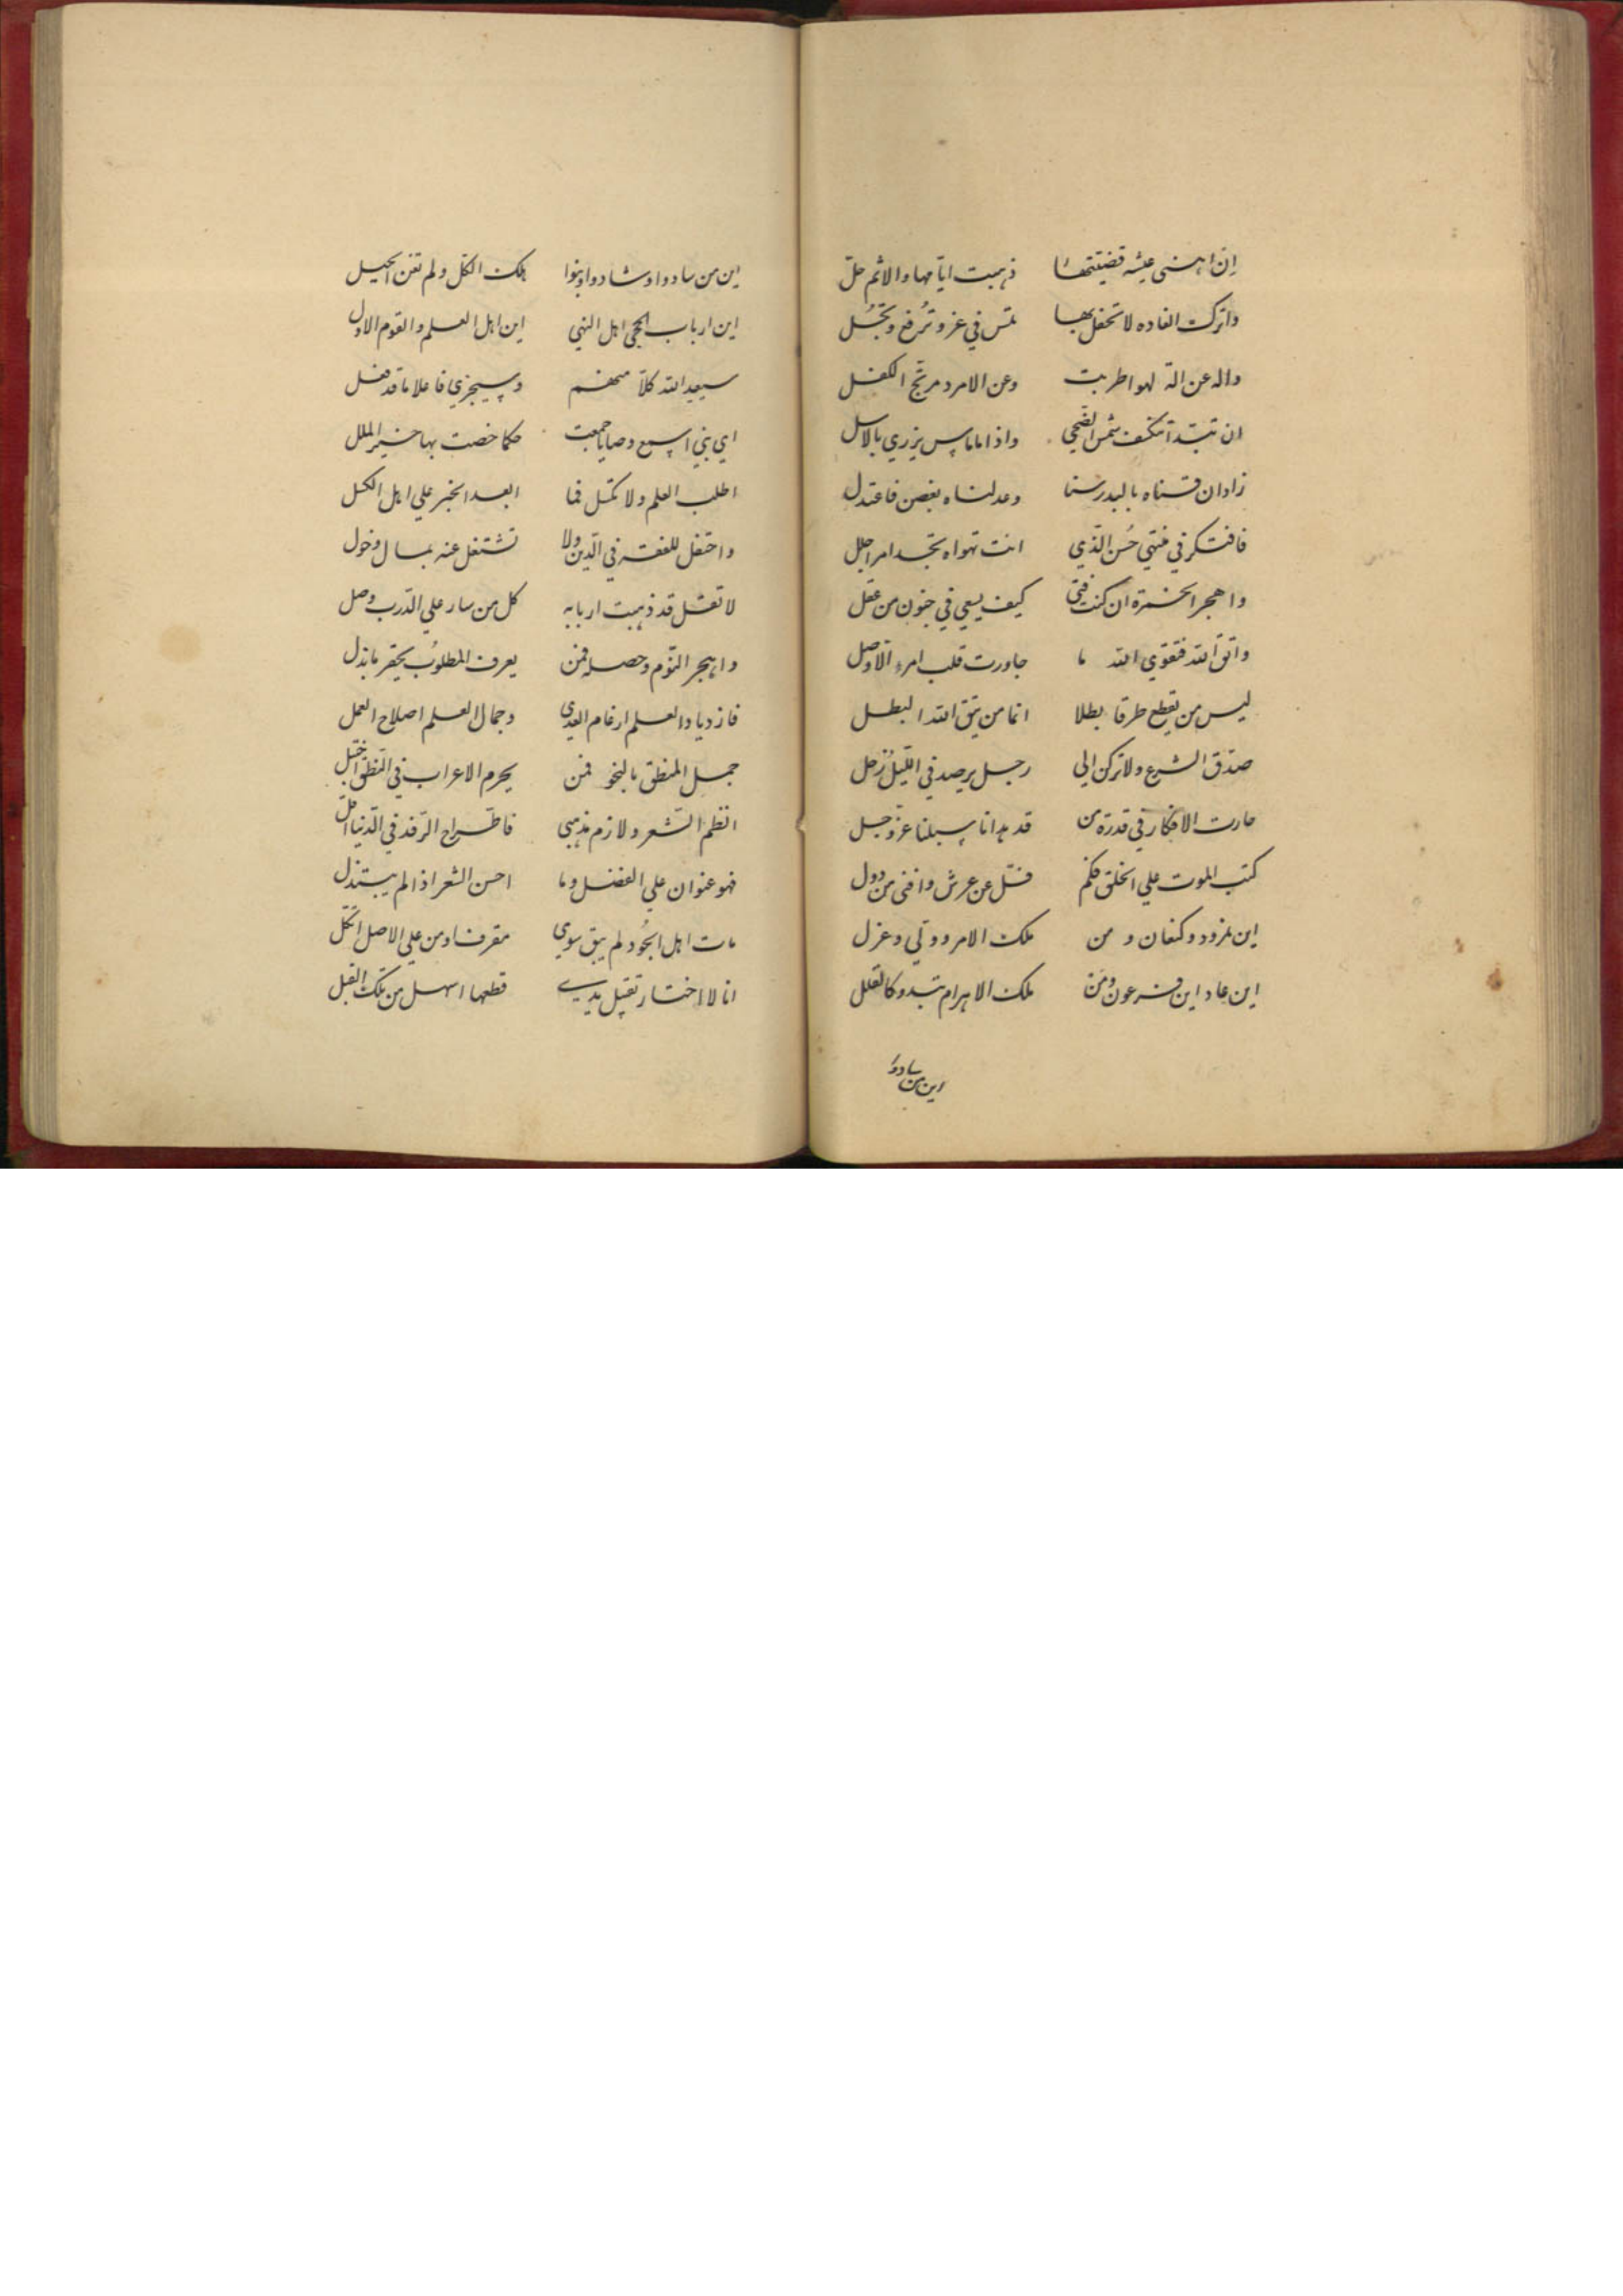 إن اهنى عيشة قضيتها ذهبت ايّامها والاثم حلّ
واترك الغاده لا تحفل بها تمس في عز وتُرفع وتجُل
واله عن آلة لهو اطربت وعن الامرد مرتجّ الكفل
ان تبدّا تنكسف شمس الضّحي واذا ما ماس يزري بالاسل
زاد ان قسناه بالبدر سنا وعدلناه بغصن فاعتدل
فافتكر في منتهي حُسن الّذي انت تهواه تجد امرا جلل
واهجر الخمرة ان كنت فتي كيف يسعي في جنون من عقل
واتق الله فتقوي الله ما جاورت قلب امرء الّا وصل
ليس من يقطع طرقا بطلا انما من يتق الله البطل
صدّق الشرع ولا تركن الي رجل يرصد في اللّيل زحل
حارت الافكار في قدرة من قد هدانا سبلنا عز وجل
كتب الموت علي الخلق فكم فلّ عن عرش وافنى من دول
اين نمرود وكنعان و من ملك الامر وولّي وعزل
اين عاد اين فرعون ومن ملك الاهرام تبدو كالقلل
اين من سادوا
اين من سادوا وشادوا وبنوا هلك الكلّ ولم تغن الحيل
اين ارباب الحجي اهل النهي اين اهل العلم والقوم الاول
سيعيد الله كلّا منهم وسيجزي فاعلا ما قد فعل
اي بني اسمع وصايا جمعت حكما خصت بها خير الملل
اطلب العلم ولا تكسل فما ابعد الخير علي اهل الكسل
واحتفل للفقه في الدّين ولا تشتغل عنه بمال وخول
لا تقل قد ذهبت اربابه كل من سار علي الدّرب وصل
واهجر النّوم وحصله فمن يعرف المطلوب يحقر ما بذل
فازدياد العلم ارغام العدي وجمال العلم اصلاح العمل
جمل المنطق بالنحو فمن يحرم الاعراب في النطق اختبل
انظم الشّعر ولازم مذهبي فاطّراح الرّفد في الدّنيا اقلّ
فهو عنوان علي الفضل وما احسن الشعر اذا لم يبتذل
مات اهل الجُود لم يبق سوي مقرف او من علي الاصل اتّكل
انا لا اختار تقبيل يد قطعها اسهل من تلك القبل